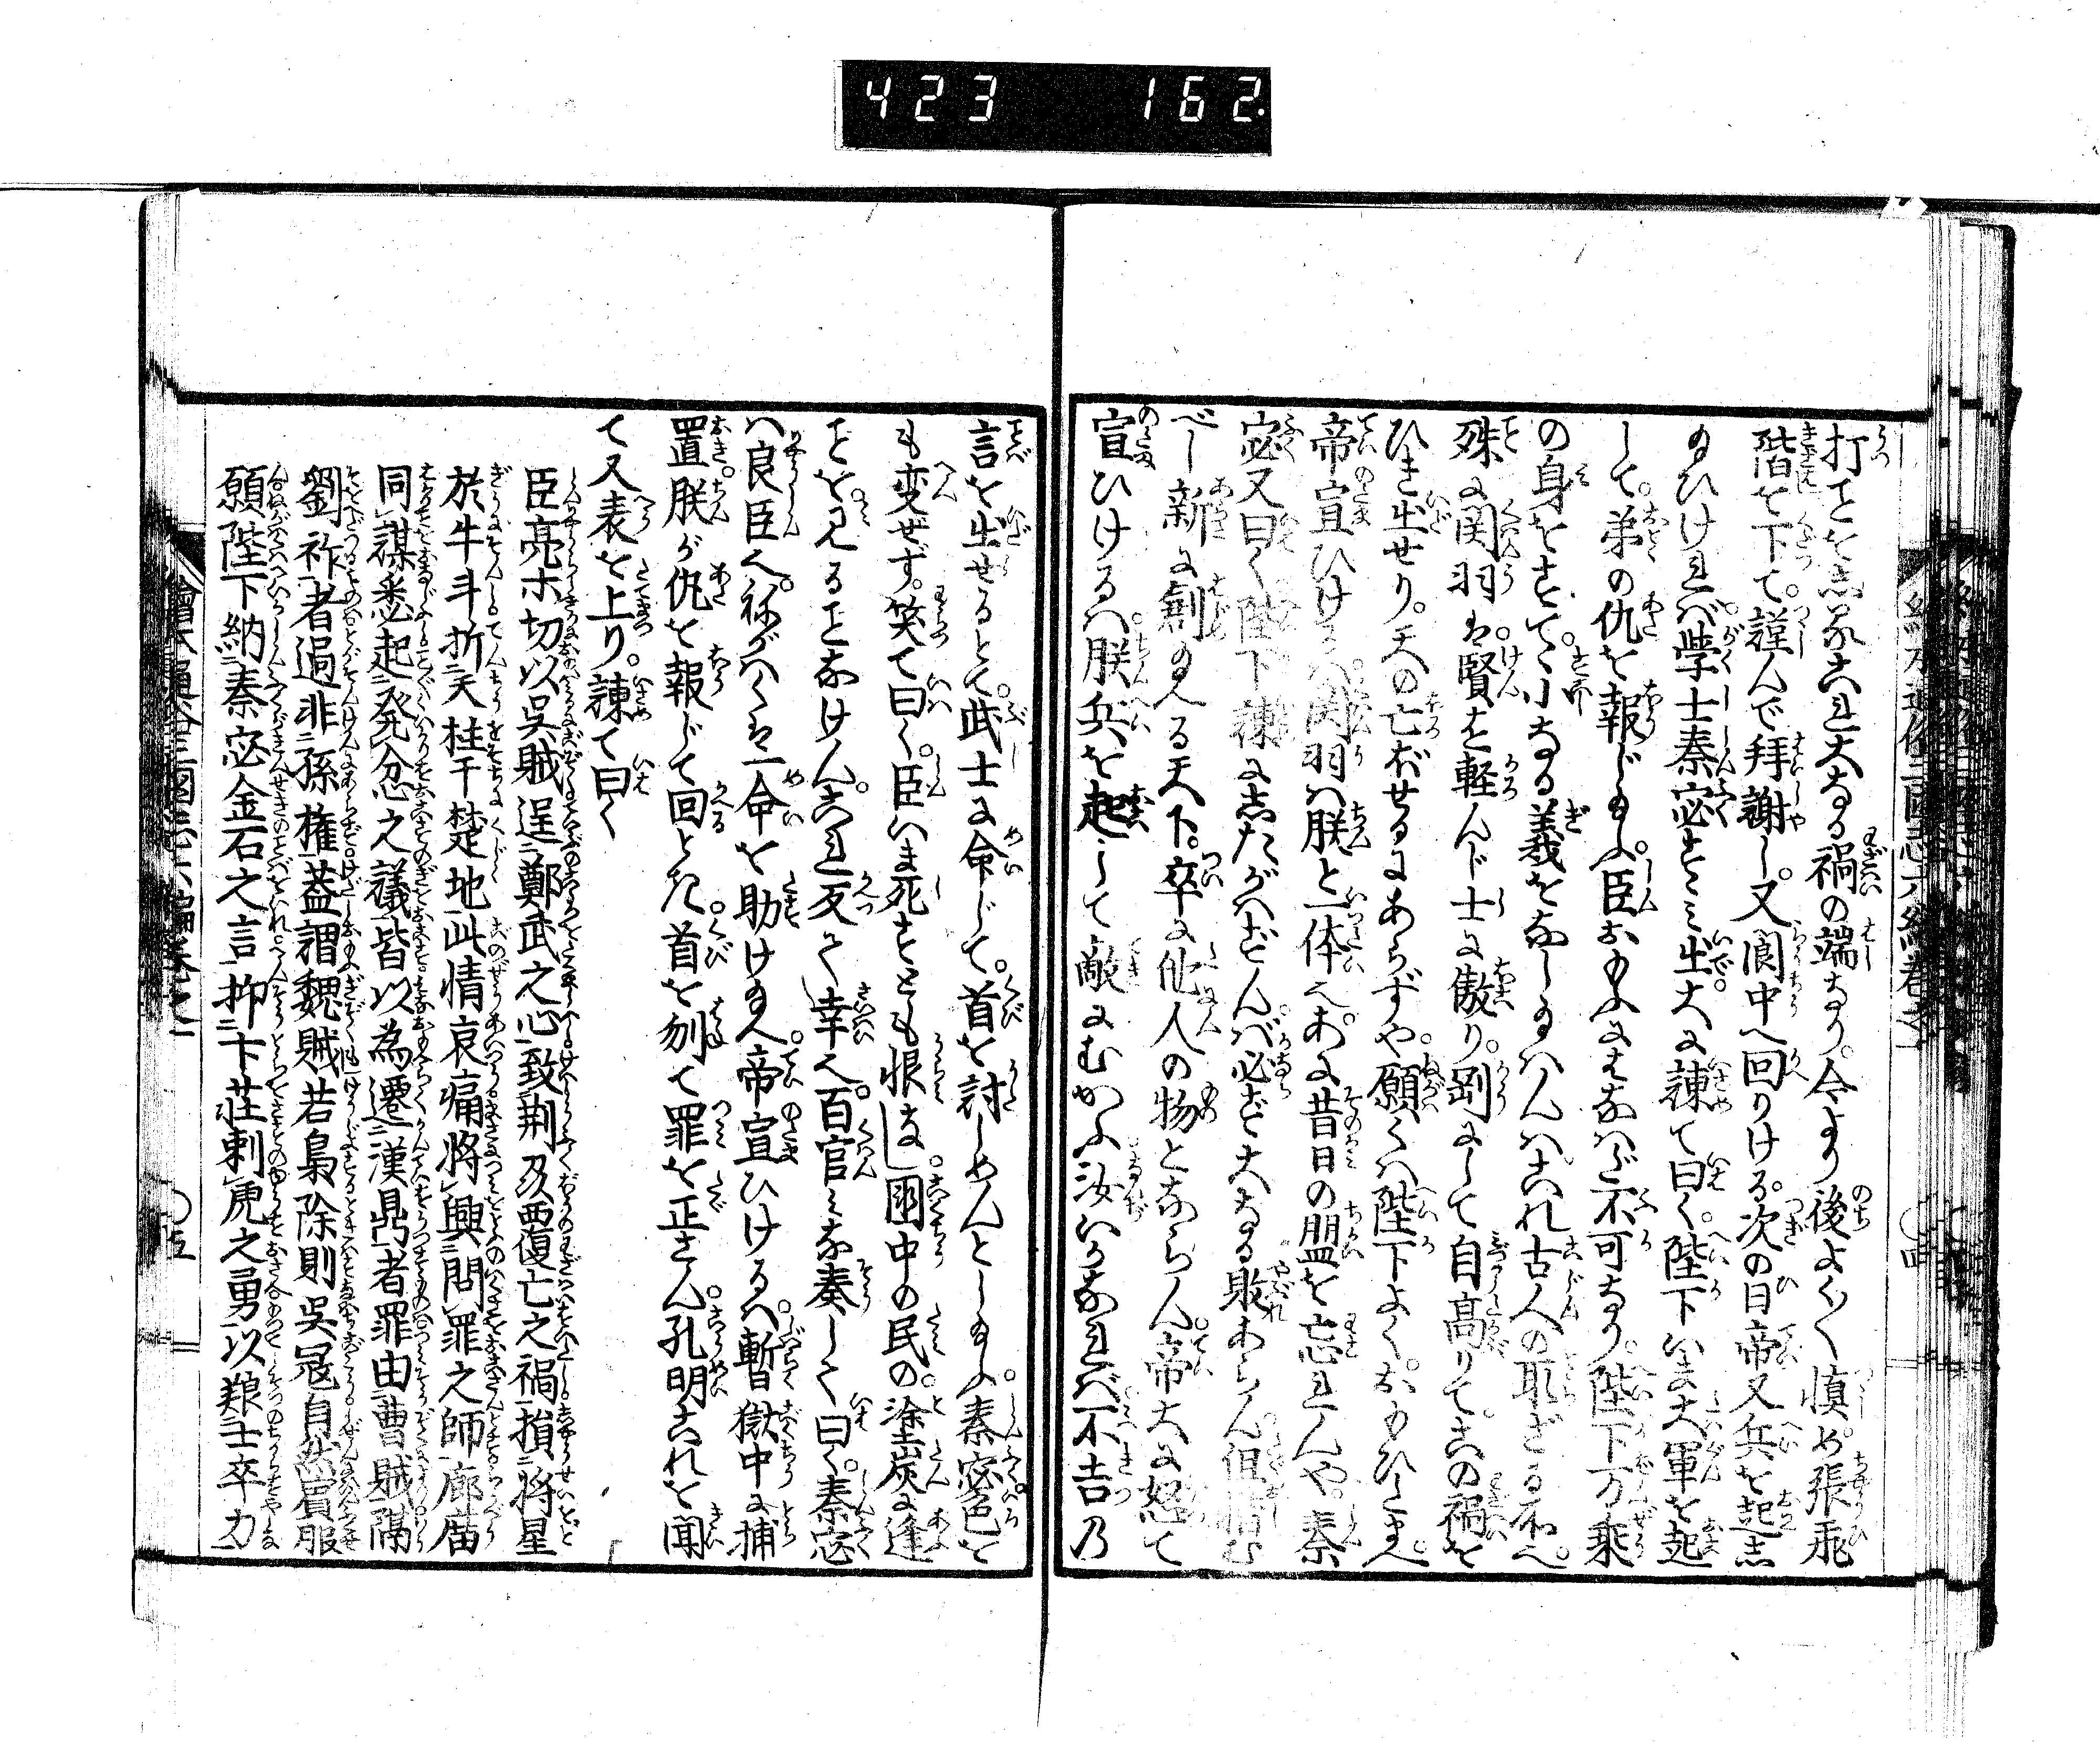 423 162.
打ことを忘るこれ大なる禍の端なり。今より後よく〱慎め張飛
階を下て。謹んで拝謝し。又閬中へ回りける。次の日帝又兵を起し
給ひければ。学士秦宓すゝみ出大に諌て曰く。陛下いま大軍を起
して。弟の仇を報じ給ふ。臣おもふにはなはだ不可なり。陛下万乗
の身をすてゝ。小なる義をなし給はんはこれ古人の取ざる所へ。
殊に関羽は。賢を軽んじ士に傲り。剛にして自高りて。この禍を
ひき出せり。天の亡ぼせるにあらずや。願くは陛下よく。おもひ給へ。
帝宣ひけるは。関羽は朕と一体へ。あに昔日の盟を忘れんや。秦
宓又曰く陛下諌にしたがへずんば必ず大なる敗あらん。但惜む
べし新に創給へる天下。卒に他人の物とならん。帝大に怒て
宣ひけるは。朕兵を起して敵にむかふ汝いかなれば不吉乃
言を出せるとて。武士に命じて。首を討しめんとし給ふ。秦宓色を
も変ぜず。笑て曰く。臣いま死すとも恨はなし。国中の民の。塗炭に逢
ことを見ることなけん。これ反て幸へ。百官みな奏して曰く。秦宓
は良臣へ。ねがはくは一命を助け給へ。帝宣ひけるは。暫獄中に捕
置。朕が仇を報じて回とき。首を刎て罪を正さん。孔明これを聞
て又表を上り。諌て曰く
臣亮ホ切以呉賊逞鄭武之心致荊及覆亡之禍損将星
於牛斗折天柱于楚地此情哀痛将興問罪之師廊庿
同謀悉起発忿之議皆以為遷漢鼎者罪由曹賊隔
劉祚者過非孫権蓋謂魏賊若梟除則呉冦自然賓服
願陛下納秦宓金石之言抑卞荘刺虎之勇以養士卒力